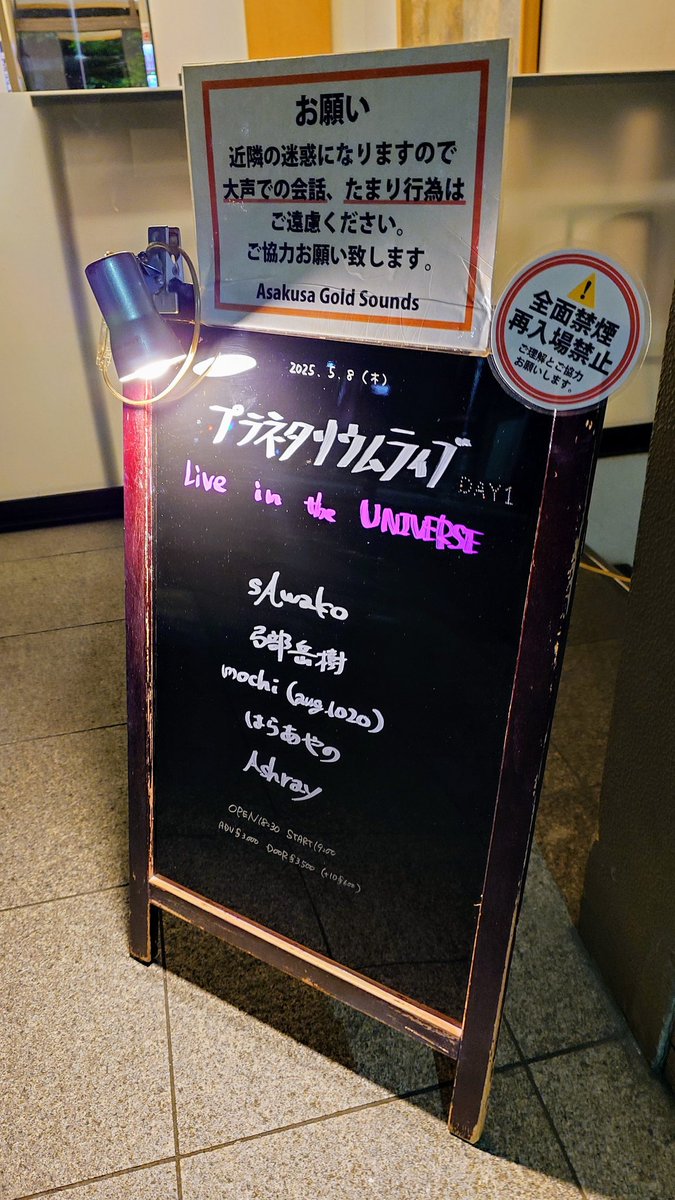 お願い
近隣の迷惑になりますので
大声での会話、たまり行為は
ご遠慮ください。
ご協力お願い致します。
Asakusa Gold Sounds
全面禁煙
再入場禁止
ご理解とご協力
お願いします。
2025.5.8(木)
プラネタリウムライブ
DAY1
Live in the UNIVERSE
sAwako
弓部岳樹
mochi (aug.1020)
はらあやの
Ashray
OPEN18:30 START19:00
ADV¥3,000 DOOR¥3,500 (+1D¥600)